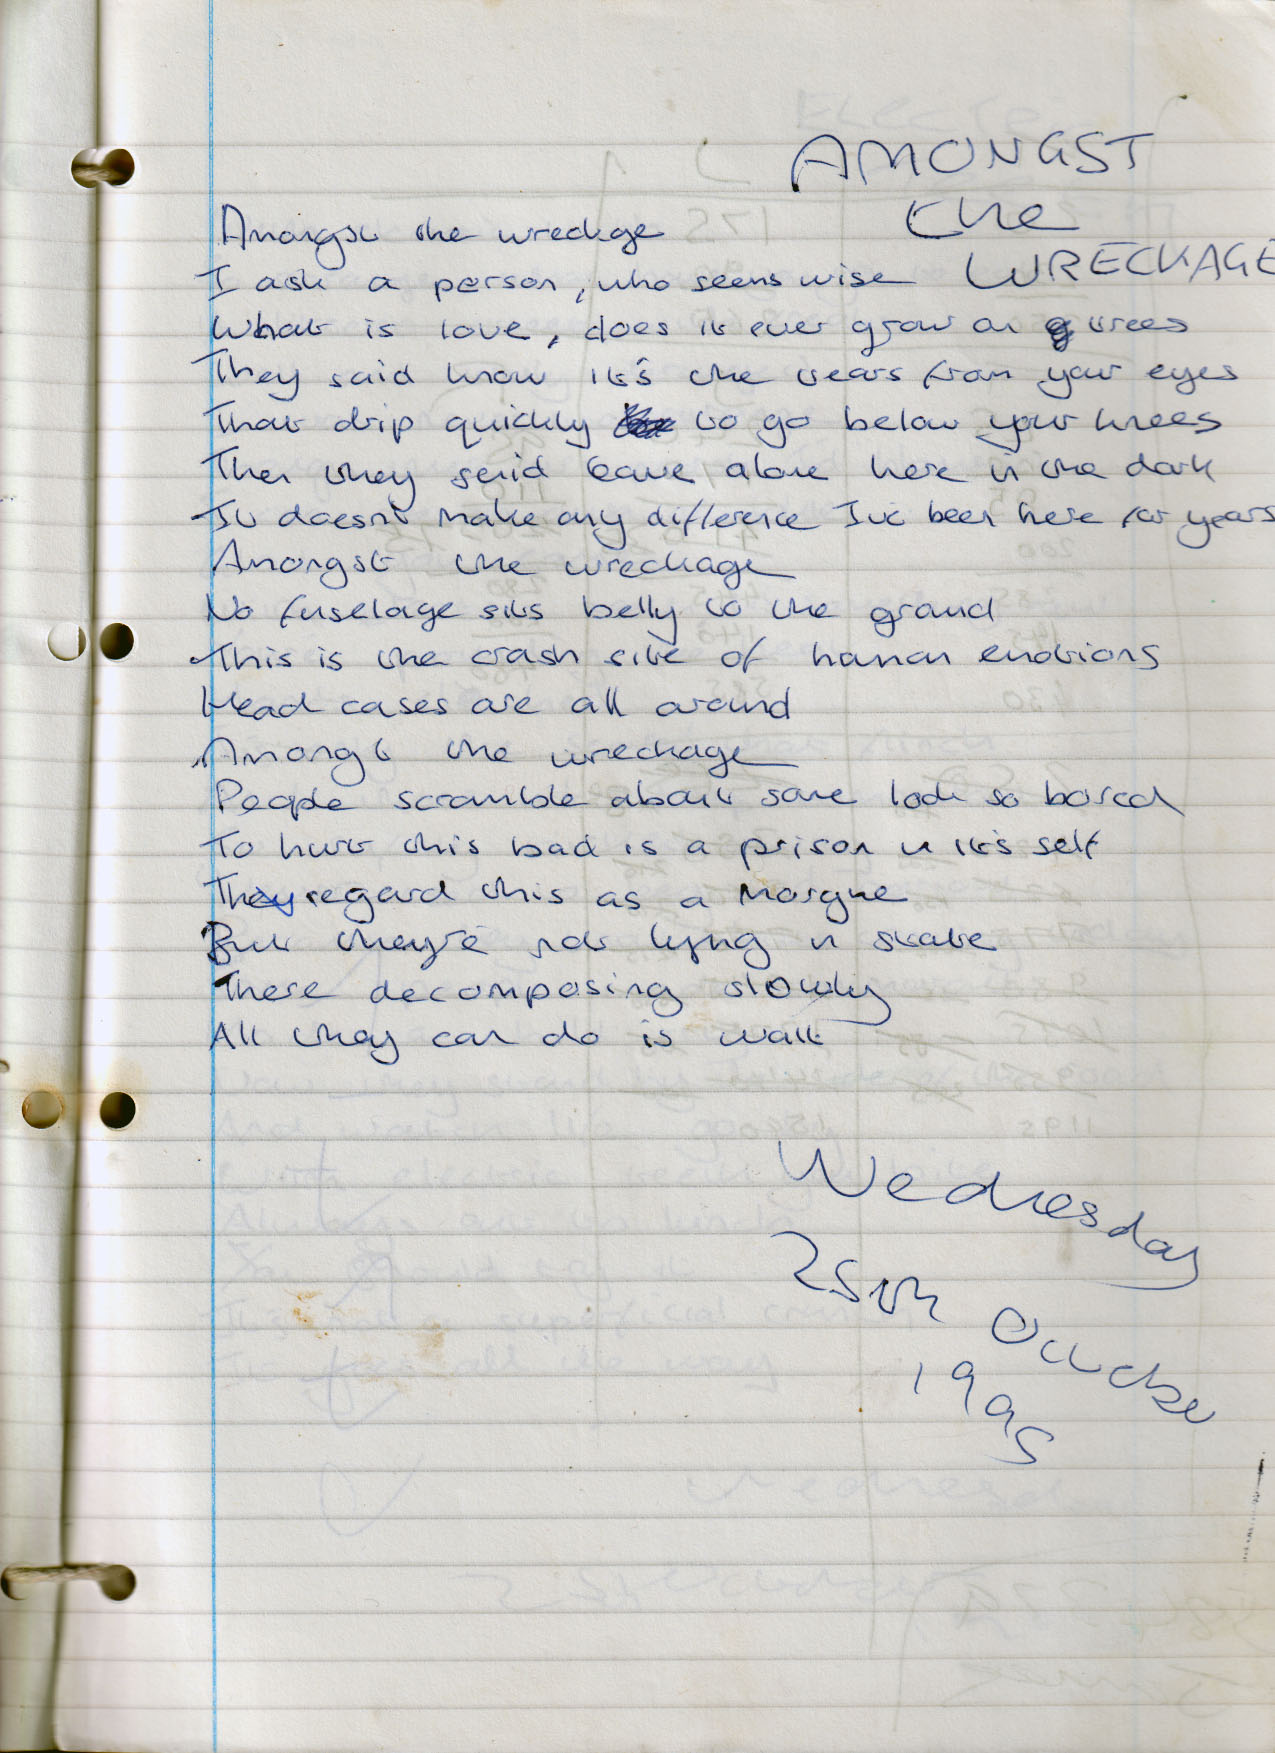 AMONGST
the
WRECKAGE
Amongst the wreckage
I ask a person, who seems wise
What is love, does it ever grow on trees
They said know it's the tears from your eyes
That drip quickly to go below your knees
Then they send leave alone here in the dark
It doesn't make any difference I've been here for years
Amongst the wreckage
No fuselage sits belly to the ground
This is the crash site of human emotions
Head cases are all around
Amongt the wreckage
People scramble about some look so bored
To hurt this bad is a prison in it's self
They regard this as a morgue
But they're not lying in state
There decomposing slowly
All they can do is wait
Wednesday
25th October
1995